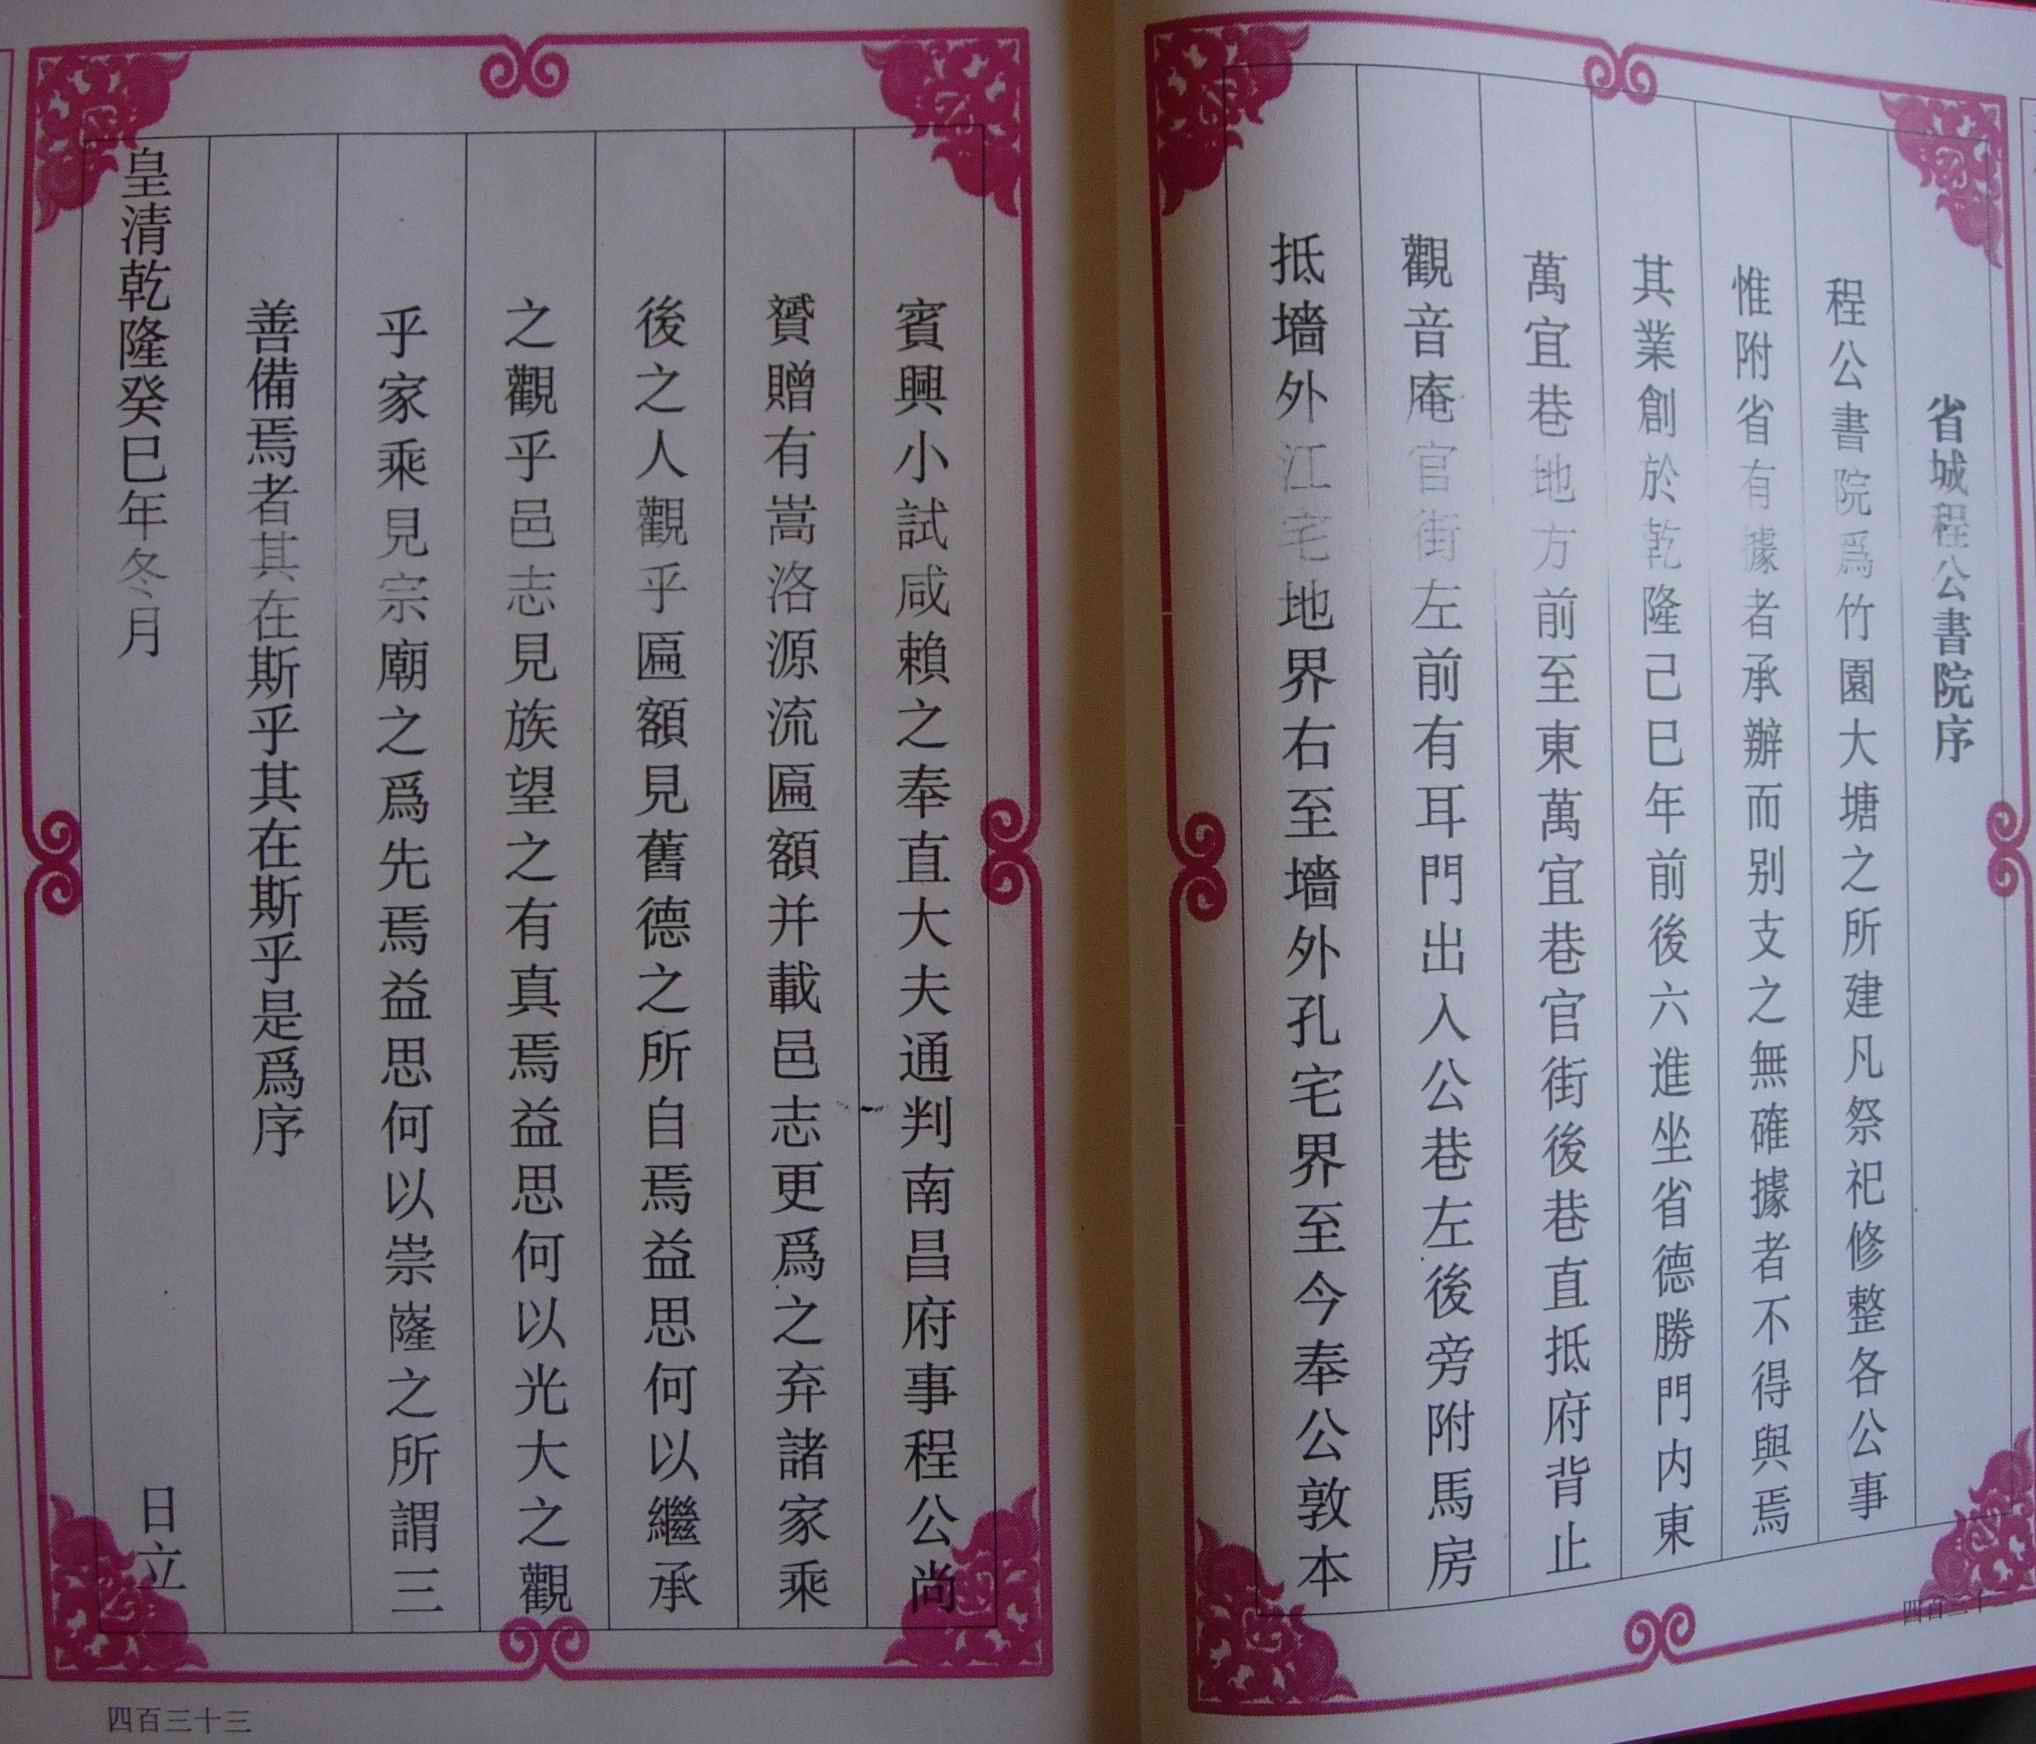 省城程公書院序
程公書院爲竹園大塘之所建凡祭祀修整各公事
惟附省有據者承辦而别支之無確據者不得與焉
其業創於乾隆己巳年前後六進坐省德勝門内東
萬宜巷地方前至東萬宜巷官街後巷直抵府背止
觀音庵官街左前有耳門出入公巷左後旁附馬房
抵墻外江宅地界右至墻外孔宅界至今奉公敦本
四百三十二
賓興小試咸賴之奉直大夫通判南昌府事程公尚
贇贈有嵩洛源流匾額并載邑志更爲之弃諸家乘
後之人觀乎匾額見舊德之所自焉益思何以繼承
之觀乎邑志見族望之有真焉益思何以光大之觀
乎家乘見宗廟之爲先焉益思何以崇嶐之所謂三
善備焉者其在斯乎其在斯乎是爲序
皇清乾隆癸巳年冬月 日立
四百三十三